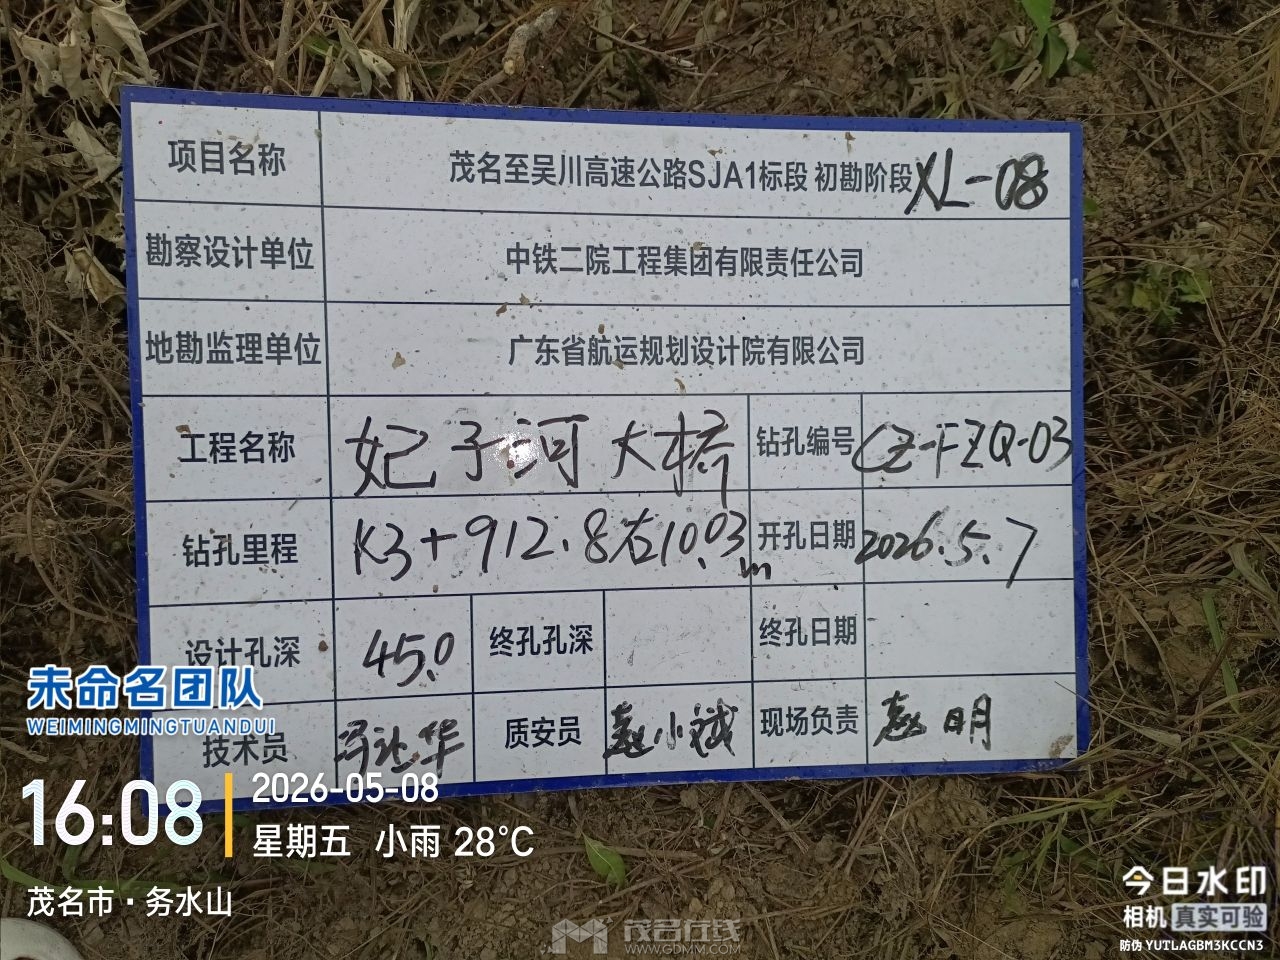 项目名称 茂名至吴川高速公路SJA1标段 初勘阶段 XL-08
勘察设计单位 中铁二院工程集团有限责任公司
地勘监理单位 广东省航运规划设计院有限公司
工程名称 妃子河大桥 钻孔编号 CZ-FZQ-03
钻孔里程 K3+912.8右10.03m 开孔日期 2026.5.7
设计孔深 45.0 终孔孔深 终孔日期
技术员 华 质安员 赵小斌 现场负责 赵明
未命名团队
WEIMINGMINGTUANDUI
16:08
2026-05-08
星期五 小雨 28℃
茂名市·务水山
今日水印
相机 真实可验
防伪 YUTLAGBM3KCCN3
茂名在线
WWW.GDMM.COM